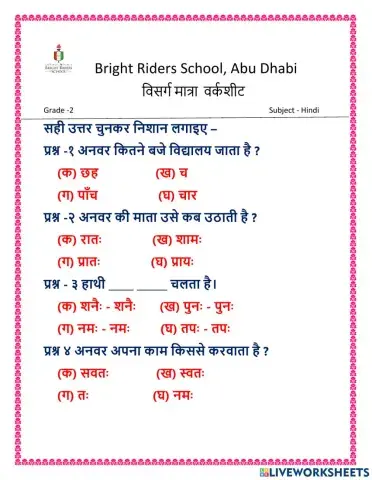 BRIGHT RIDERS
SCHOOL
Bright Riders School, Abu Dhabi
विसर्ग मात्रा वर्कशीट
Grade -2 Subject - Hindi
सही उत्तर चुनकर निशान लगाइए –
प्रश्न -१ अनवर कितने बजे विद्यालय जाता है ?
(क) छह (ख) च
(ग) पाँच (घ) चार
प्रश्न -२ अनवर की माता उसे कब उठाती है ?
(क) रातः (ख) शामः
(ग) प्रातः (घ) प्रायः
प्रश्न - ३ हाथी ____ _____ चलता है।
(क) शनैः - शनैः (ख) पुनः - पुनः
(ग) नमः - नमः (घ) तपः - तपः
प्रश्न ४ अनवर अपना काम किससे करवाता है ?
(क) सवतः (ख) स्वतः
(ग) तः (घ) नमः
LIVEWORKSHEETS